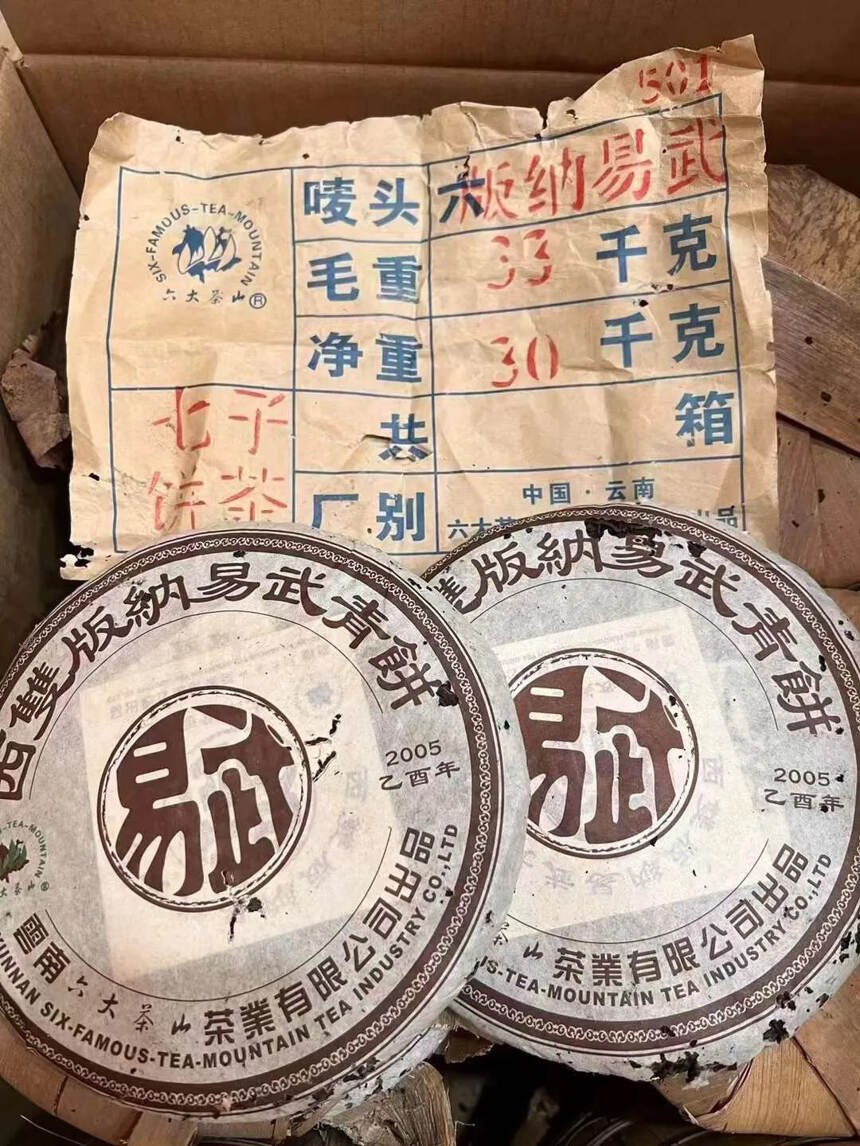 501
唛头 六版纳易武
SIX-FAMOUS-TEA-MOUNTAIN
六大茶山®
毛重 33 千克
净重 30 千克
七子
饼茶
共 箱
厂别
中国·云南
六大茶 出品
西雙版納易武青餅
易武
2005
乙酉年
TEA-MOUNTAIN
大茶山®
雲南六大茶山茶業有限公司出品
YUNNAN SIX-FAMOUS-TEA-MOUNTAIN TEA INDUSTRY CO.,LTD
雙版納易武青餅
易武
2005
乙酉年
茶山茶業有限公司出品
US-TEA-MOUNTAIN TEA INDUSTRY CO.,LTD